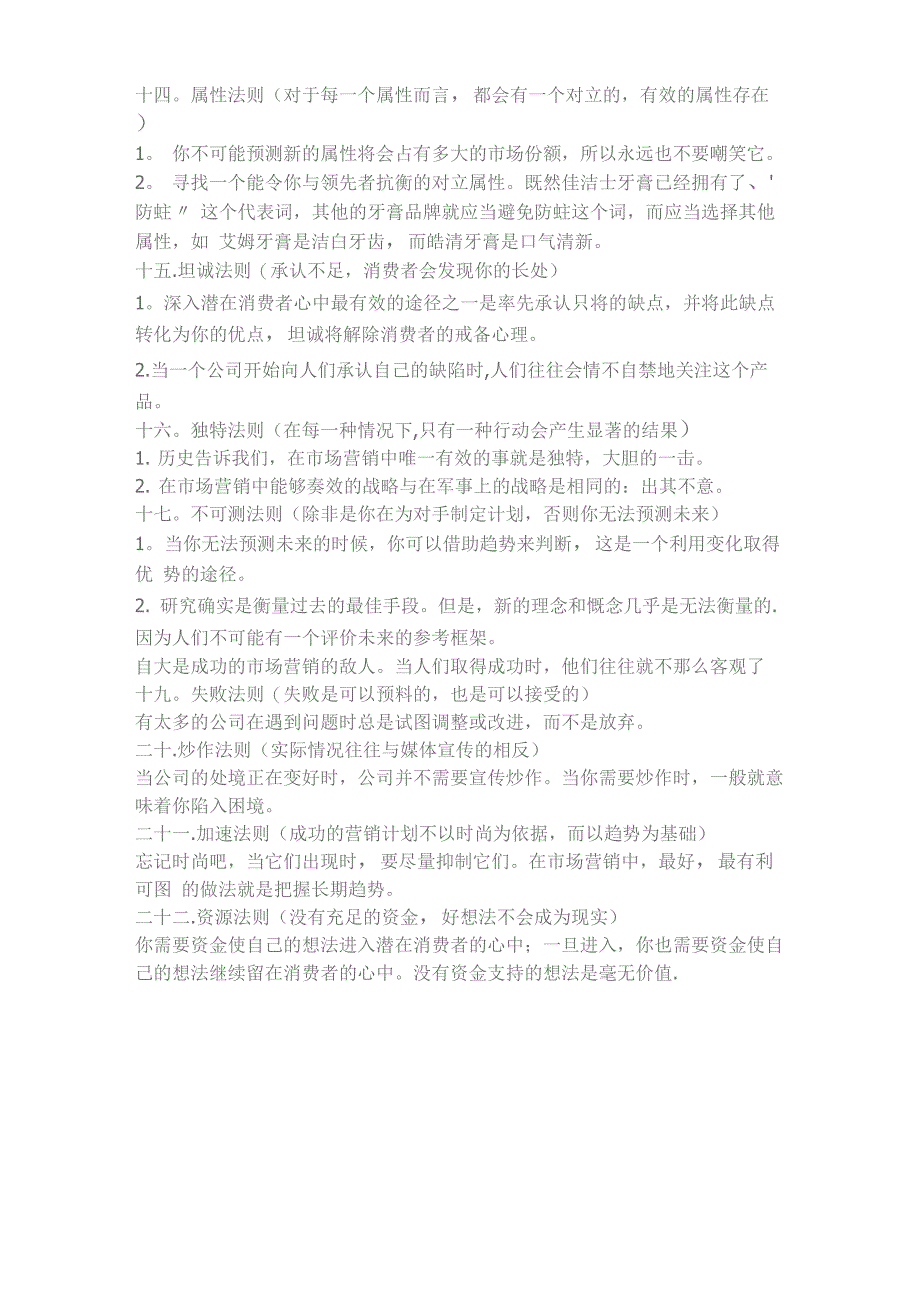 十四。属性法则（对于每一个属性而言，都会有一个对立的，有效的属性存在
）
1。 你不可能预测新的属性将会占有多大的市场份额，所以永远也不要嘲笑它。
2。 寻找一个能令你与领先者抗衡的对立属性。既然佳洁士牙膏已经拥有了、'
防蛀〃 这个代表词，其他的牙膏品牌就应当避免防蛀这个词，而应当选择其他
属性，如 艾姆牙膏是洁白牙齿，而皓清牙膏是口气清新。
十五.坦诚法则（承认不足，消费者会发现你的长处）
1。深入潜在消费者心中最有效的途径之一是率先承认只将的缺点，并将此缺点
转化为你的优点，坦诚将解除消费者的戒备心理。
2.当一个公司开始向人们承认自己的缺陷时,人们往往会情不自禁地关注这个产
品。
十六。独特法则（在每一种情况下,只有一种行动会产生显著的结果）
1. 历史告诉我们，在市场营销中唯一有效的事就是独特，大胆的一击。
2. 在市场营销中能够奏效的战略与在军事上的战略是相同的：出其不意。
十七。不可测法则（除非是你在为对手制定计划，否则你无法预测未来）
1。当你无法预测未来的时候，你可以借助趋势来判断，这是一个利用变化取得
优 势的途径。
2. 研究确实是衡量过去的最佳手段。但是，新的理念和慨念几乎是无法衡量的.
因为人们不可能有一个评价未来的参考框架。
自大是成功的市场营销的敌人。当人们取得成功时，他们往往就不那么客观了
十九。失败法则（失败是可以预料的，也是可以接受的）
有太多的公司在遇到问题时总是试图调整或改进，而不是放弃。
二十.炒作法则（实际情况往往与媒体宣传的相反）
当公司的处境正在变好时，公司并不需要宣传炒作。当你需要炒作时，一般就意
味着你陷入困境。
二十一.加速法则（成功的营销计划不以时尚为依据，而以趋势为基础）
忘记时尚吧，当它们出现时，要尽量抑制它们。在市场营销中，最好，最有利
可图 的做法就是把握长期趋势。
二十二.资源法则（没有充足的资金，好想法不会成为现实）
你需要资金使自己的想法进入潜在消费者的心中；一旦进入，你也需要资金使自
己的想法继续留在消费者的心中。没有资金支持的想法是毫无价值.